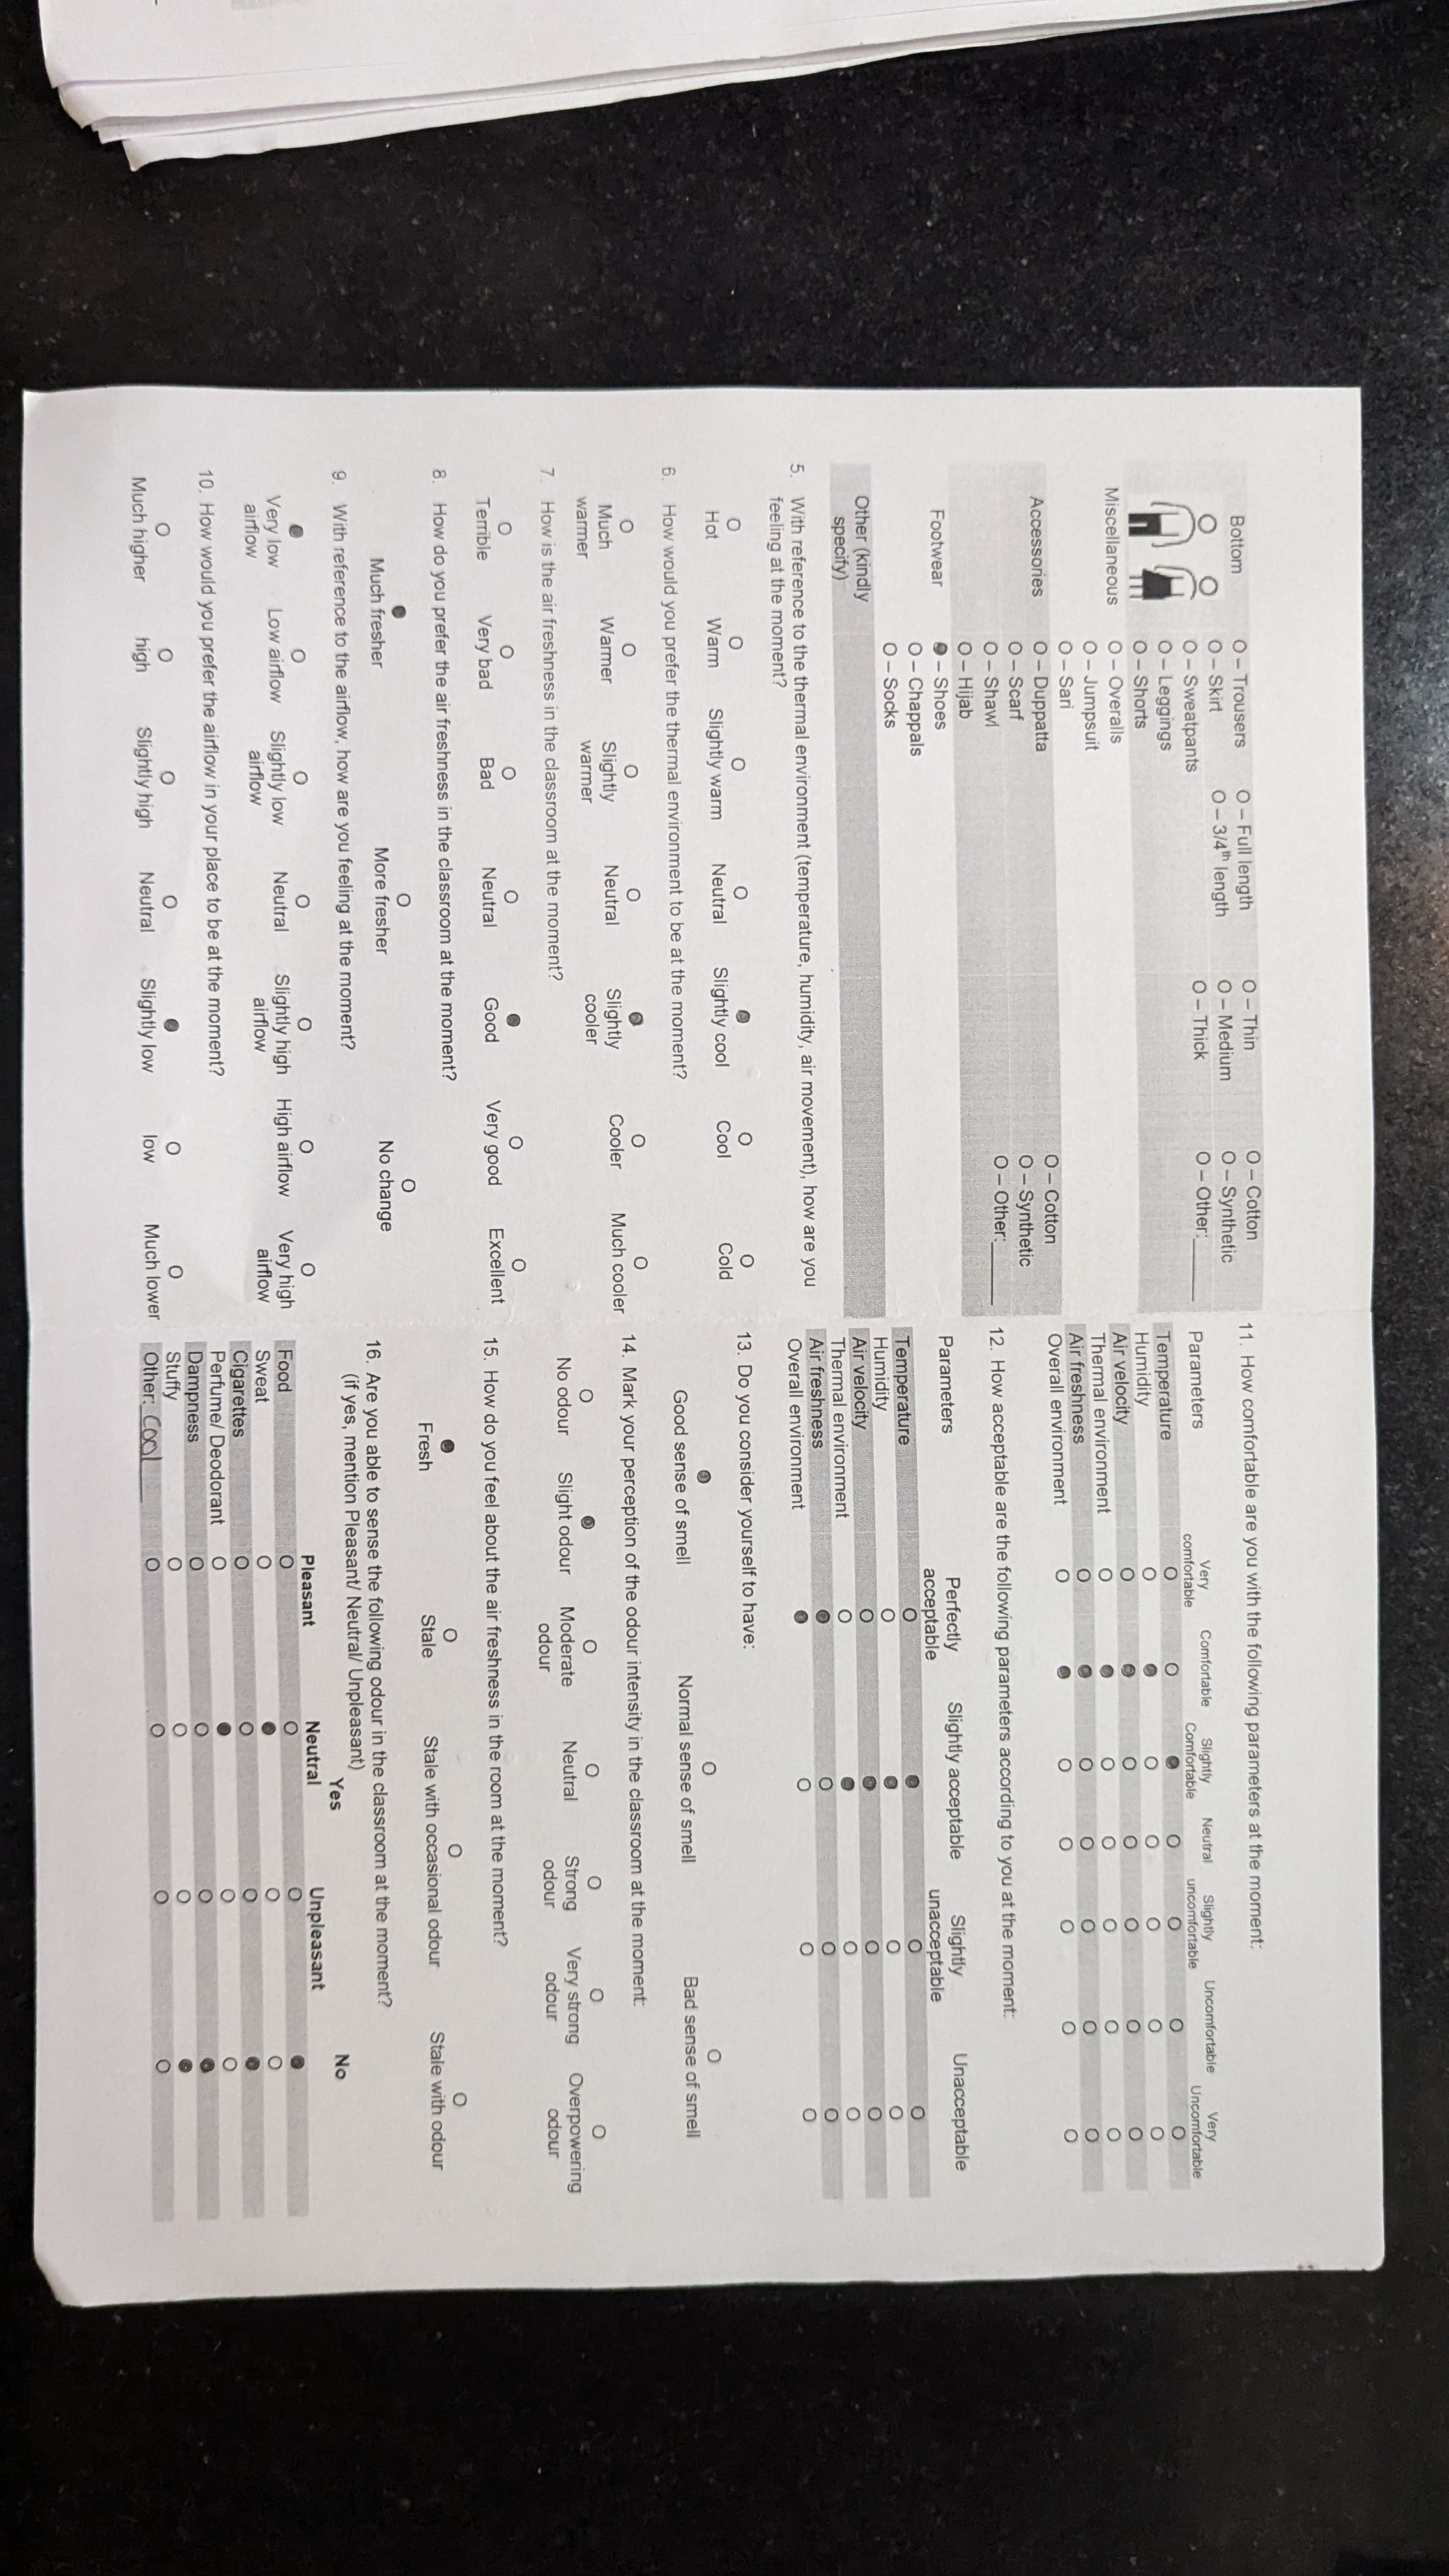 Bottom
O – Trousers O – Full length O – Thin O – Cotton
O – Skirt O – 3/4th length O – Medium O – Synthetic
O – Sweatpants O – Thick O – Other:______
O – Leggings
O – Shorts
Miscellaneous O – Overalls
O – Jumpsuit
O – Sari
Accessories O – Duppatta O – Cotton
O – Scarf O – Synthetic
O – Shawl O – Other:______
O – Hijab
Footwear ● – Shoes
O – Chappals
O – Socks
Other (kindly
specify)
5. With reference to the thermal environment (temperature, humidity, air movement), how are you
feeling at the moment?
O O O O ● O O
Hot Warm Slightly warm Neutral Slightly cool Cool Cold
6. How would you prefer the thermal environment to be at the moment?
O O O O ● O O
Much Warmer Slightly Neutral Slightly Cooler Much cooler
warmer warmer cooler
7. How is the air freshness in the classroom at the moment?
O O O O ● O O
Terrible Very bad Bad Neutral Good Very good Excellent
8. How do you prefer the air freshness in the classroom at the moment?
● O O
Much fresher More fresher No change
9. With reference to the airflow, how are you feeling at the moment?
● O O O O O O
Very low Low airflow Slightly low Neutral Slightly high High airflow Very high
airflow airflow airflow airflow
10. How would you prefer the airflow in your place to be at the moment?
O O O O ● O O
Much higher high Slightly high Neutral Slightly low low Much lower
11. How comfortable are you with the following parameters at the moment:
Parameters Very Comfortable Slightly Neutral Slightly Uncomfortable Very
comfortable Comfortable uncomfortable Uncomfortable
Temperature O O ● O O O O
Humidity O ● O O O O O
Air velocity O ● O O O O O
Thermal environment O ● O O O O O
Air freshness O ● O O O O O
Overall environment O ● O O O O O
12. How acceptable are the following parameters according to you at the moment:
Parameters Perfectly Slightly acceptable Slightly Unacceptable
acceptable unacceptable
Temperature O ● O O
Humidity O ● O O
Air velocity O ● O O
Thermal environment O ● O O
Air freshness ● O O O
Overall environment ● O O O
13. Do you consider yourself to have:
● O O
Good sense of smell Normal sense of smell Bad sense of smell
14. Mark your perception of the odour intensity in the classroom at the moment:
O ● O O O O O
No odour Slight odour Moderate Neutral Strong Very strong Overpowering
odour odour odour odour
15. How do you feel about the air freshness in the room at the moment?
● O O O
Fresh Stale Stale with occasional odour Stale with odour
16. Are you able to sense the following odour in the classroom at the moment?
(if yes, mention Pleasant/ Neutral/ Unpleasant)
Yes No
Pleasant Neutral Unpleasant
Food O O O ●
Sweat O ● O O
Cigarettes O O O ●
Perfume/ Deodorant O ● O O
Dampness O O O ●
Stuffy O O O ●
Other: Cool O O O O